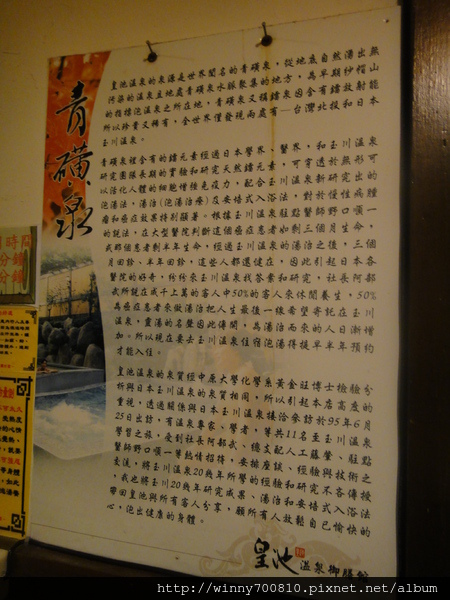 青磺泉
皇池溫泉的泉源是世界聞名的青磺泉，從地底自然湧出無
污染的溫泉立地處青磺泉水脈聚集的地方，為早期紗帽山
的指標泡溫泉之所在地，青磺泉又稱鐳泉因含有鐳放射能
所以珍貴又稀有，全世界僅發現兩處有—台灣北投和日本
玉川溫泉。
青磺泉裡含有的鐳元素經過日本學界、醫界，和玉川溫泉
研究團隊長期累的實驗和研究天然鐳元素，可穿透於無形可
以活化人體的細胞增強免疫力，配合玉川溫泉新研究出的
湯治(泡湯治療)在安培式入浴法，對於慢性病腫
瘤和癌症效果特別顯著。根據玉川溫泉駐點醫師野口順一
的說法，在大型醫院判斷這個癌症患者如剩三個月生命，
或那個患者剩半年生命，經過玉川溫泉的湯治之後，三個
月回診、半年回診，這些人都還健在，因此引起日本各
醫院的好奇，紛紛來玉川溫泉找答案和研究，社長阿部
武所說在成千上萬的客人中50%的客人來休閒養生，50%
為癌症患者來做湯治把人生最後一線希望寄託在玉川
溫泉，靈湯的名聲因此傳開，為湯治而來的人日漸增
加。所以現在要去玉川溫泉住宿泡湯得提早半年預約
才能入住。
皇池溫泉的泉質經中原大學化學系黃金旺博士檢驗分
析與日本玉川溫泉的泉質相同，所以引起本店高度的
重視，透過關係與日本玉川溫泉接洽參訪於95年6月
25日出訪，有溫泉專家、學者，等共11名至玉川溫泉
學習之旅，受到社長阿部武、總支配人工藤肇、駐點
醫師野口順一等熱情招待，安排座談、經驗與技術之
交流，將玉川溫泉20幾年所學的經驗和研究不吝傳授
，我也將玉川20幾年研究成果、湯治和安培式入浴法
帶回皇池與所有客人分享，願所有人放鬆自己愉快的
心，泡出健康的身體。
皇池 溫泉御膳館
http://winny700810.pixnet.net/album